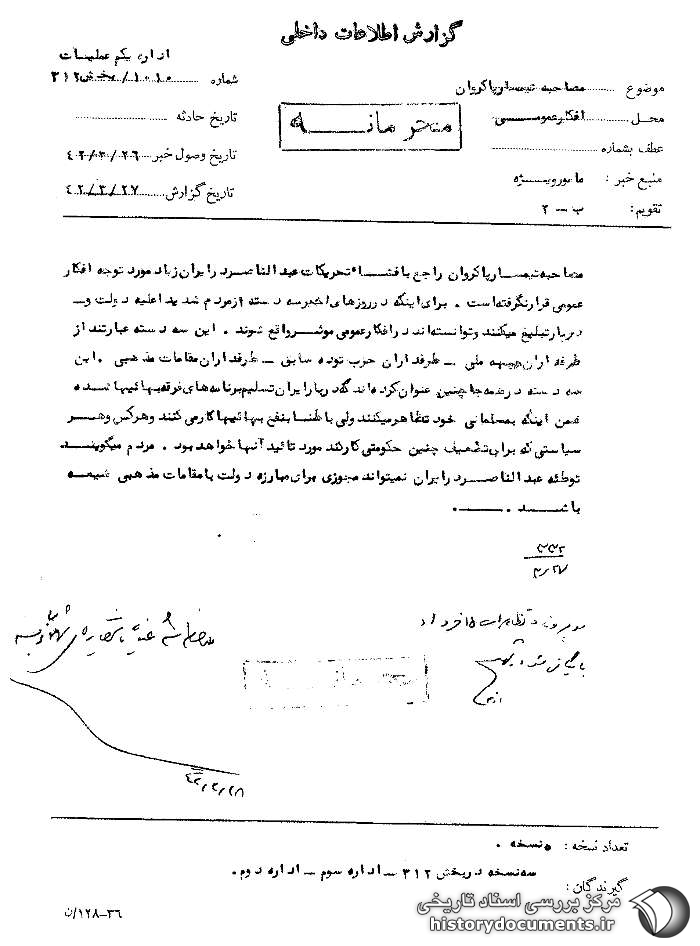 گزارش اطلاعات داخلی
اداره یکم عملیات
شماره ۱۰۱۰/بخش۳۱۲
تاریخ حادثه
تاریخ وصول خبر ۴۲/۳/۲۶
تاریخ گزارش ۴۲/۳/۲۷
موضوع مصاحبه تیمسارپاکروان
محل افکارعمومی
عطف بشماره
منبع خبر : مامورویژه
تقویم: ب - ۲
محرمانه
مصاحبه تیمسارپاکروان راجع بافشاء تحریکات عبدالناصردرایران زیاد مورد توجه افکار
عمومی قرارنگرفته است . برای اینکه درروزهای اخیرسه دسته ازمردم شدیداعلیه دولت و
دربارتبلیغ میکنند وتوانسته اند درافکارعمومی موثرواقع شوند . این سه دسته عبارتند از
طرفداران جبهه ملی - طرفداران حزب توده سابق - طرفداران مقامات مذهبی . این
سه دسته درهمه جاچنین عنوان کرده اند که دربارایران تسلیم برنامه های فرقه بهائیها شده
ضمن اینکه بمسلمانی خود تظاهرمیکنند ولی باطنا بنفع بهائیهاکارمی کنند وهرکس وهر
سیاستی که برای تضعیف چنین حکومتی کارکند مورد تائید آنهاخواهد بود . مردم میگویند
توطئه عبدالناصردرایران نمیتواند مجوزی برای مبارزه دولت بامقامات مذهبی شیعه
باشد .
۳/۲۷
تظاهرات ۱۵ خرداد
بایگانی شود
۴۲/۳/۲۸
تعداد نسخه : ۵نسخه .
گیرندگان: سه نسخه دربخش ۳۱۲ - اداره سوم - اداره دوم .
۳۶-۱۲۸/ن
مرکز بررسی اسناد تاریخی
historydocuments.ir